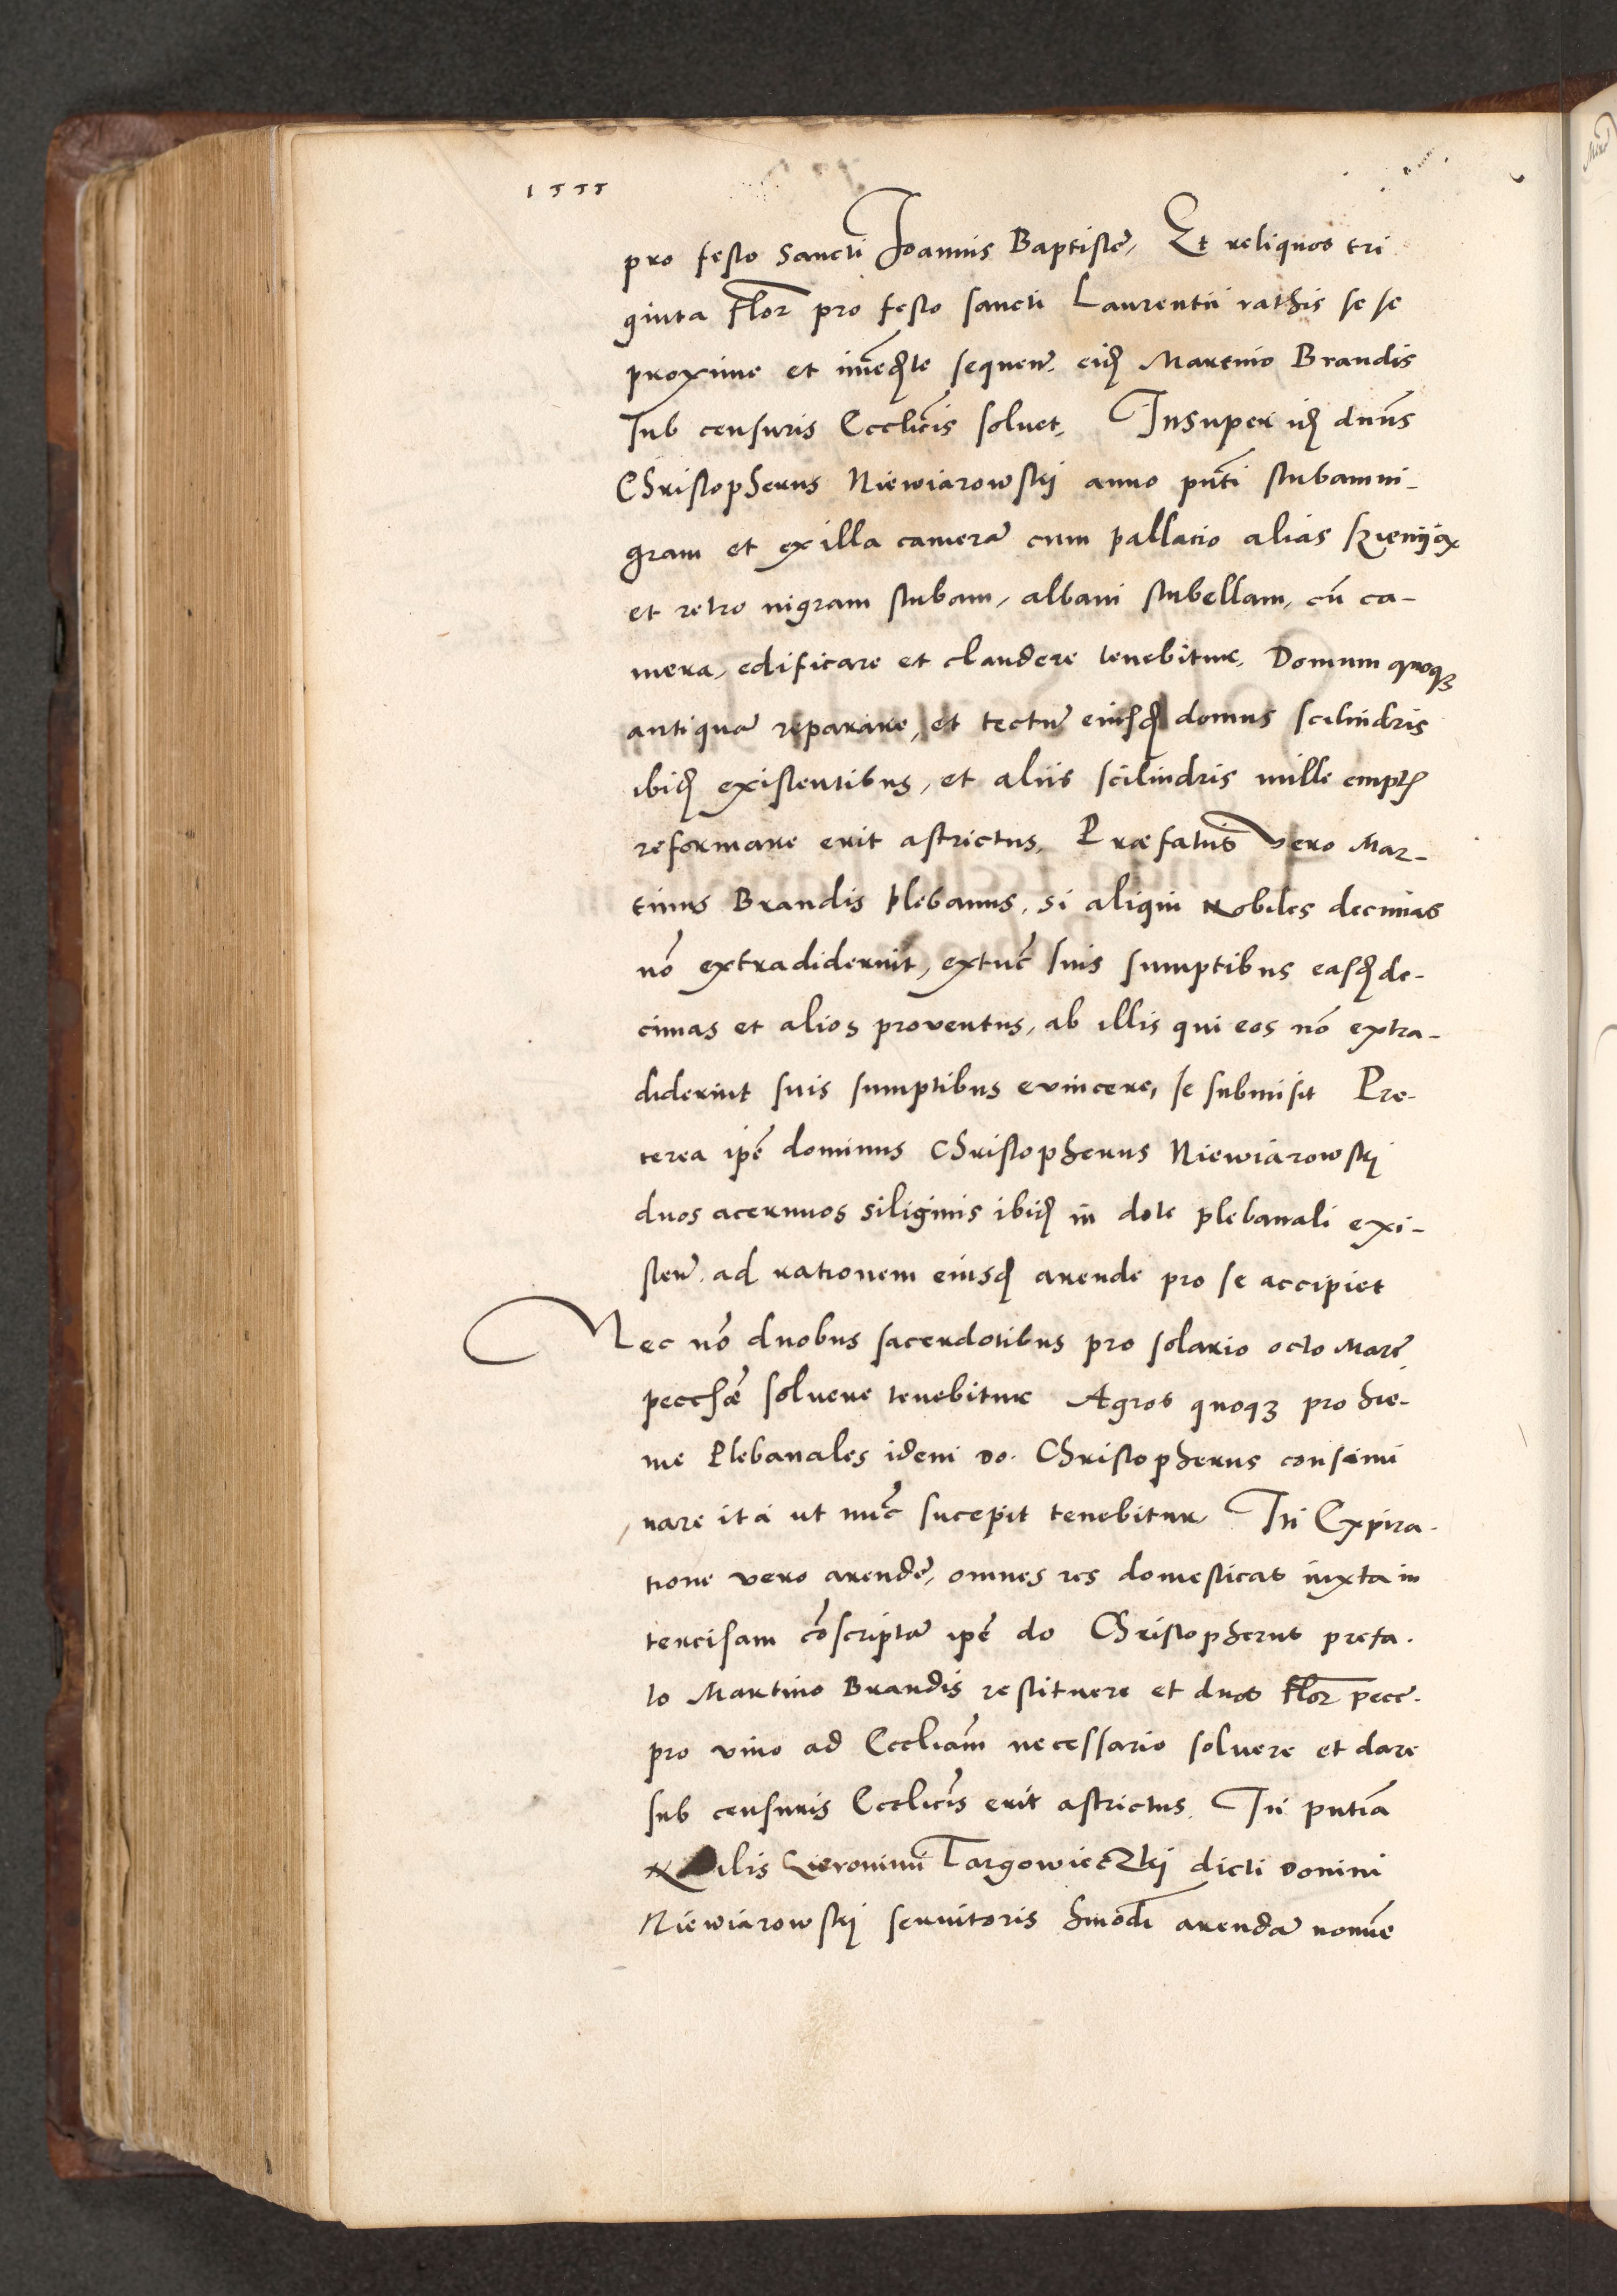 1555
pro festo Sancti Joannis Baptistę, Et reliquos tri
ginta flor pro festo sancti Laurentii rathis se se
proxime et im̄ediate sequen. eid Martino Brandis
sub censuris Eccl̄icis soluet, Insuper id dn̄us
Christopherus Niewiarowskj anno pn̄ti stubam ni-
gram et ex illa camerā cum pallacio alias
et retro nigram stubam, albam stubellam, cū ca-
mera, edificare et claudere tenebitur, Domum quoqꝫ
antiquā reparare, et tectū eiusd domus scilindris
ibid existentibus, et aliis scilindris mille empt
reformare erit astrictus, Præfatus vero Mar-
tinus Brandis plebanus, si aliqui Nobiles decimas
nō extradiderint, extūc suis sumptibus easd de-
cimas et alios proventus, ab illis qui eos nō extra-
diderint suis sumptibus evincere, se submisit Pre-
terea ip̄e dominus Christopherus Niewiarowskj
duos acervuos siliginis ibid in dote plebanali exi-
sten̄. ad rationem eiusd arende pro se accipiet
Nec nō duobus sacerdotibus pro solario octo Marc̄
pecc̄hæ soluere tenebitur Agros quoqꝫ pro hie-
me Plebanales idem do. Christopherus consemi
nare ita ut nūc sucepit tenebitur, In Expira-
tione vero arendę, omnes res domesticas iuxta in
tercisam cōscriptā ip̄e do Christopherus prefa-
to Martino Brandis restituere et duos flor pecc.
pro vino ad Eccl̄iam necessario soluere et dare
sub censuris Eccl̄icis erit astrictus. In pn̄tia
Nobilis Hieronimi Targowieczkj dicti Domini
Niewiarowskj servitoris hm̄odi arendā nom̄e